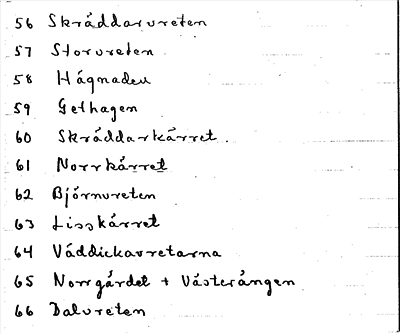 56 Skräddarvreten
57 Storvreten
58 Hägnaden
59 Gethagen
60 Skräddarkärret
61 Norrkärret
62 Björnvreten
63 Lisskärret
64 Väddickavretarna
65 Norrgärdet + Västerängen
66 Dalvreten